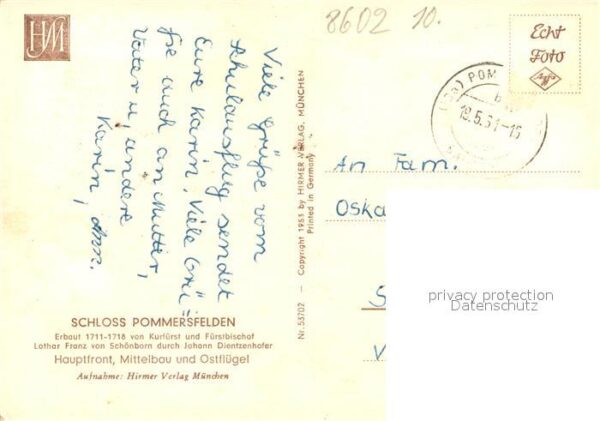 HM
8602 10.
Echt
Foto
Agfa
POM
19.5.61-16
Viele Grüße vom
Schulausflug sendet
Eure Karin. Viele Grü=
ße auch an Mutter,
Vater u. andere
Karin,
An Fam.
Oska
S
V
privacy protection
Datenschutz
Nr. 53702 — Copyright 1955 by HIRMER VERLAG, MÜNCHEN
Printed in Germany
SCHLOSS POMMERSFELDEN
Erbaut 1711-1718 von Kurfürst und Fürstbischof
Lothar Franz von Schönborn durch Johann Dientzenhofer
Hauptfront, Mittelbau und Ostflügel
Aufnahme: Hirmer Verlag München